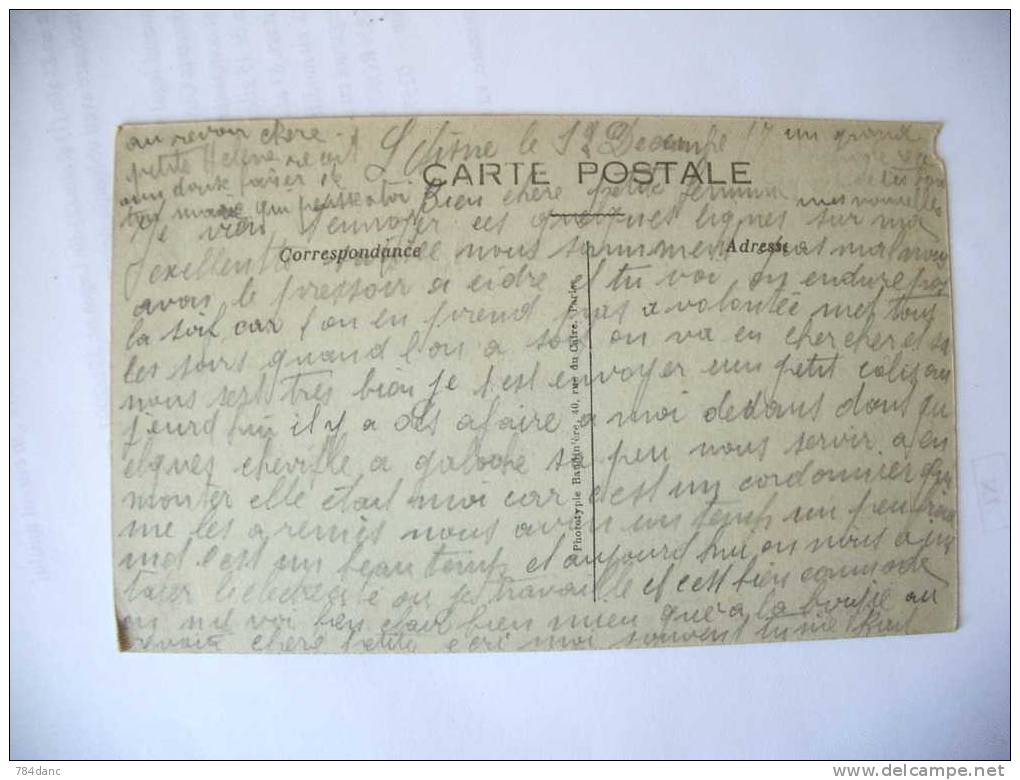 au revoir chere
petite Helene recoit
un doux baiser de
ton mari qui pense a toi
L Aisne le 12 Decembre 17 un grand
CARTE POSTALE
mes nouvelles
Bien chere petite femme
Je vien t envoyer ces quelques lignes sur ma
Correspondance
Adresse
exellente nous sommes pas mal nous
avon le pressoir a cidre et tu voi on endure pas
la soif car l on en prend pas a volontée met tous
les soirs quand l on a soif on va en chercher et sa
nous sest tres bien je t est envoyer un petit colis au
jeurd hui il y a des afaire a moi dedans dont qu
elques cheville a galoche sa peu nous servir a en
monter elle était moi car c est un cordonnier qui
me les a remis nous avon un temp un peu
met c est un beau temp et aujourd hui on nous a ins
taler l electricité ou je travaille et c est bien commode
on n y voi bien clair bien mieu qu a la bougie au
revoir chere petite ecri moi souvent
Phototypie Baudinière, 40, rue du Caire, Paris
784danc
delcampe.net